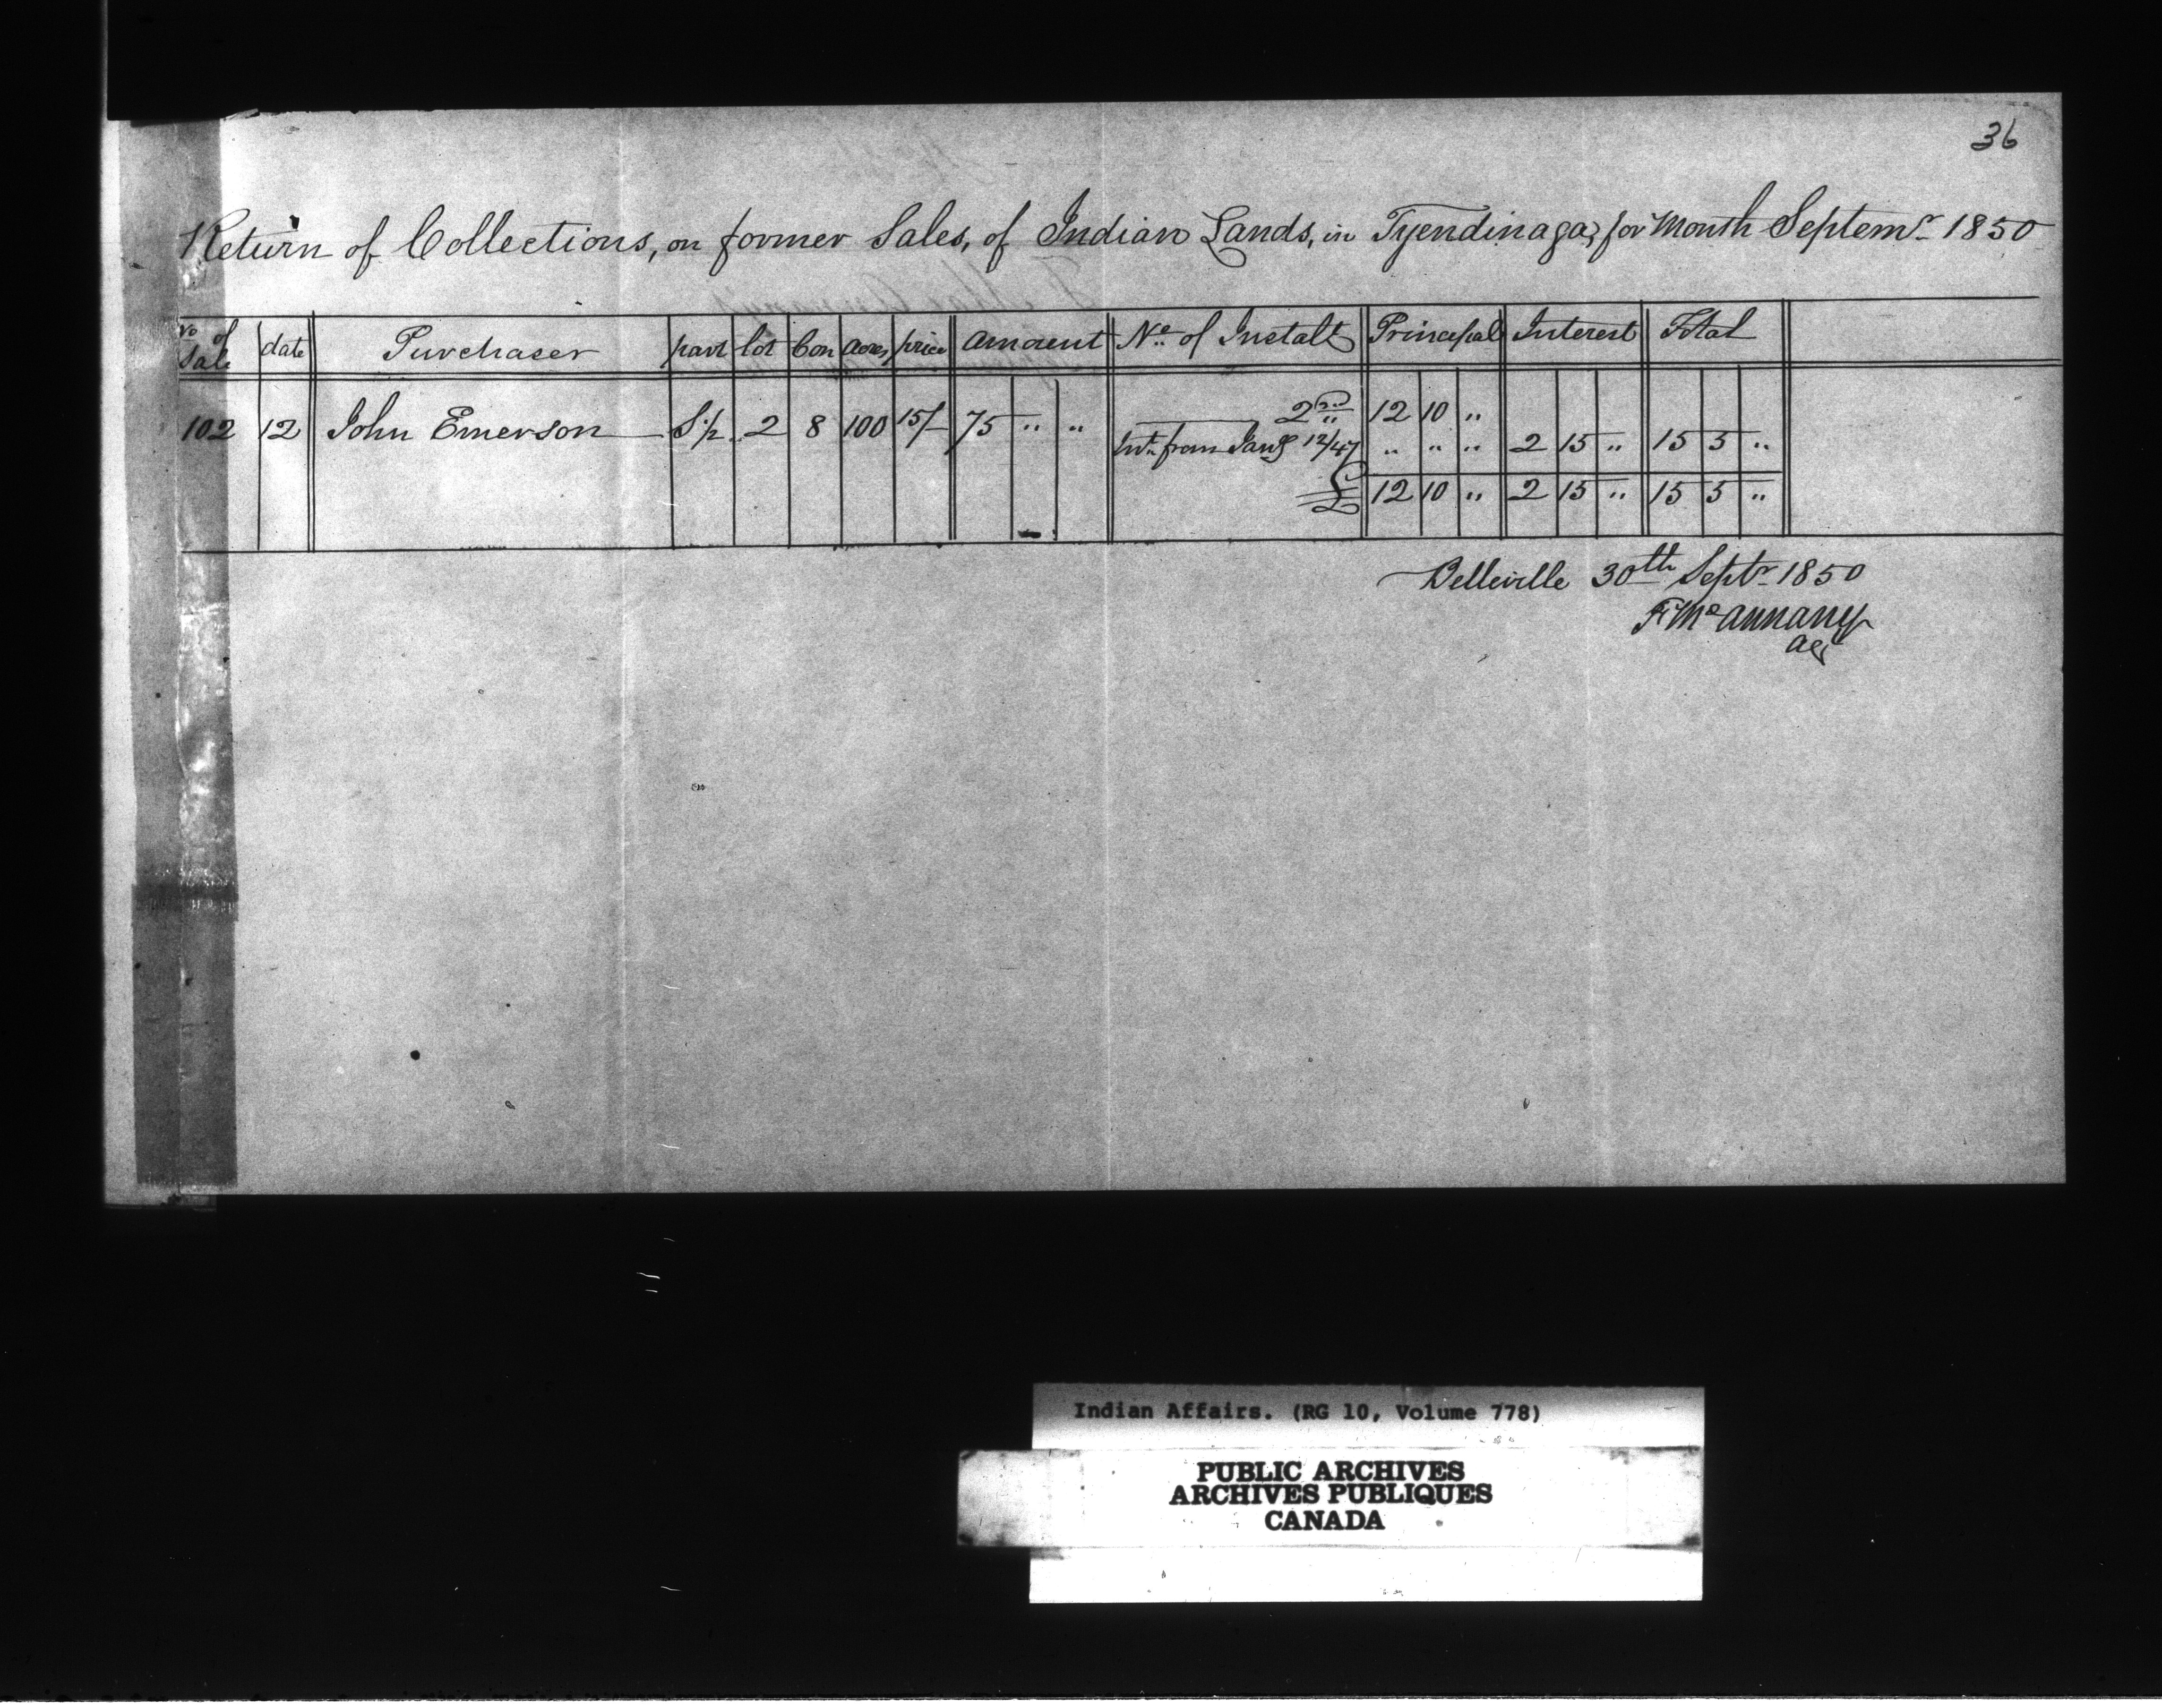 36
Return of Collections, on former Sales, of Indian Lands, in Tyendinaga, for Month Septemr 1850
No of Sale date Purchaser part lot Con Acres price Amount No. of Instalt Principal Interest Total
2nd 12 10 "
102 12 John Emerson S½ 2 8 100 15/- 75 " " Int. from Jany 12/47 " " " 2 15 " 15 5 "
£ 12 10 " 2 15 " 15 5 "
Belleville 30th Septr 1850
F McAnnany
Ag
Indian Affairs. (RG 10, Volume 778)
PUBLIC ARCHIVES
ARCHIVES PUBLIQUES
CANADA